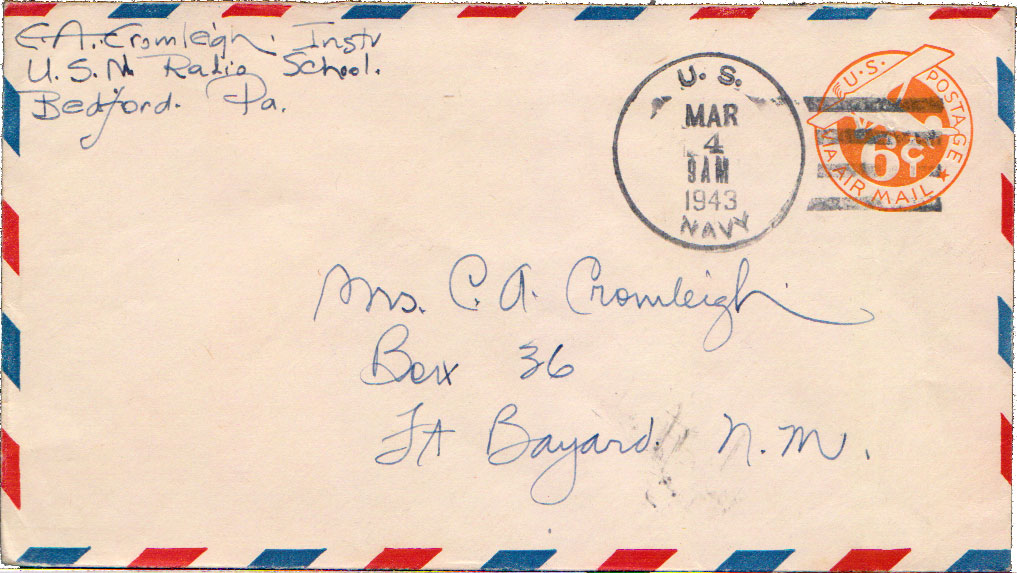 C.A. Cromleigh. Instr
U.S.N. Radio School.
Bedford. Pa.
U. S.
MAR
4
9AM
1943
NAVY
U.S. POSTAGE
6¢
VIA AIR MAIL
Mrs. C. A. Cromleigh.
Box 36
Ft Bayard. N. M.